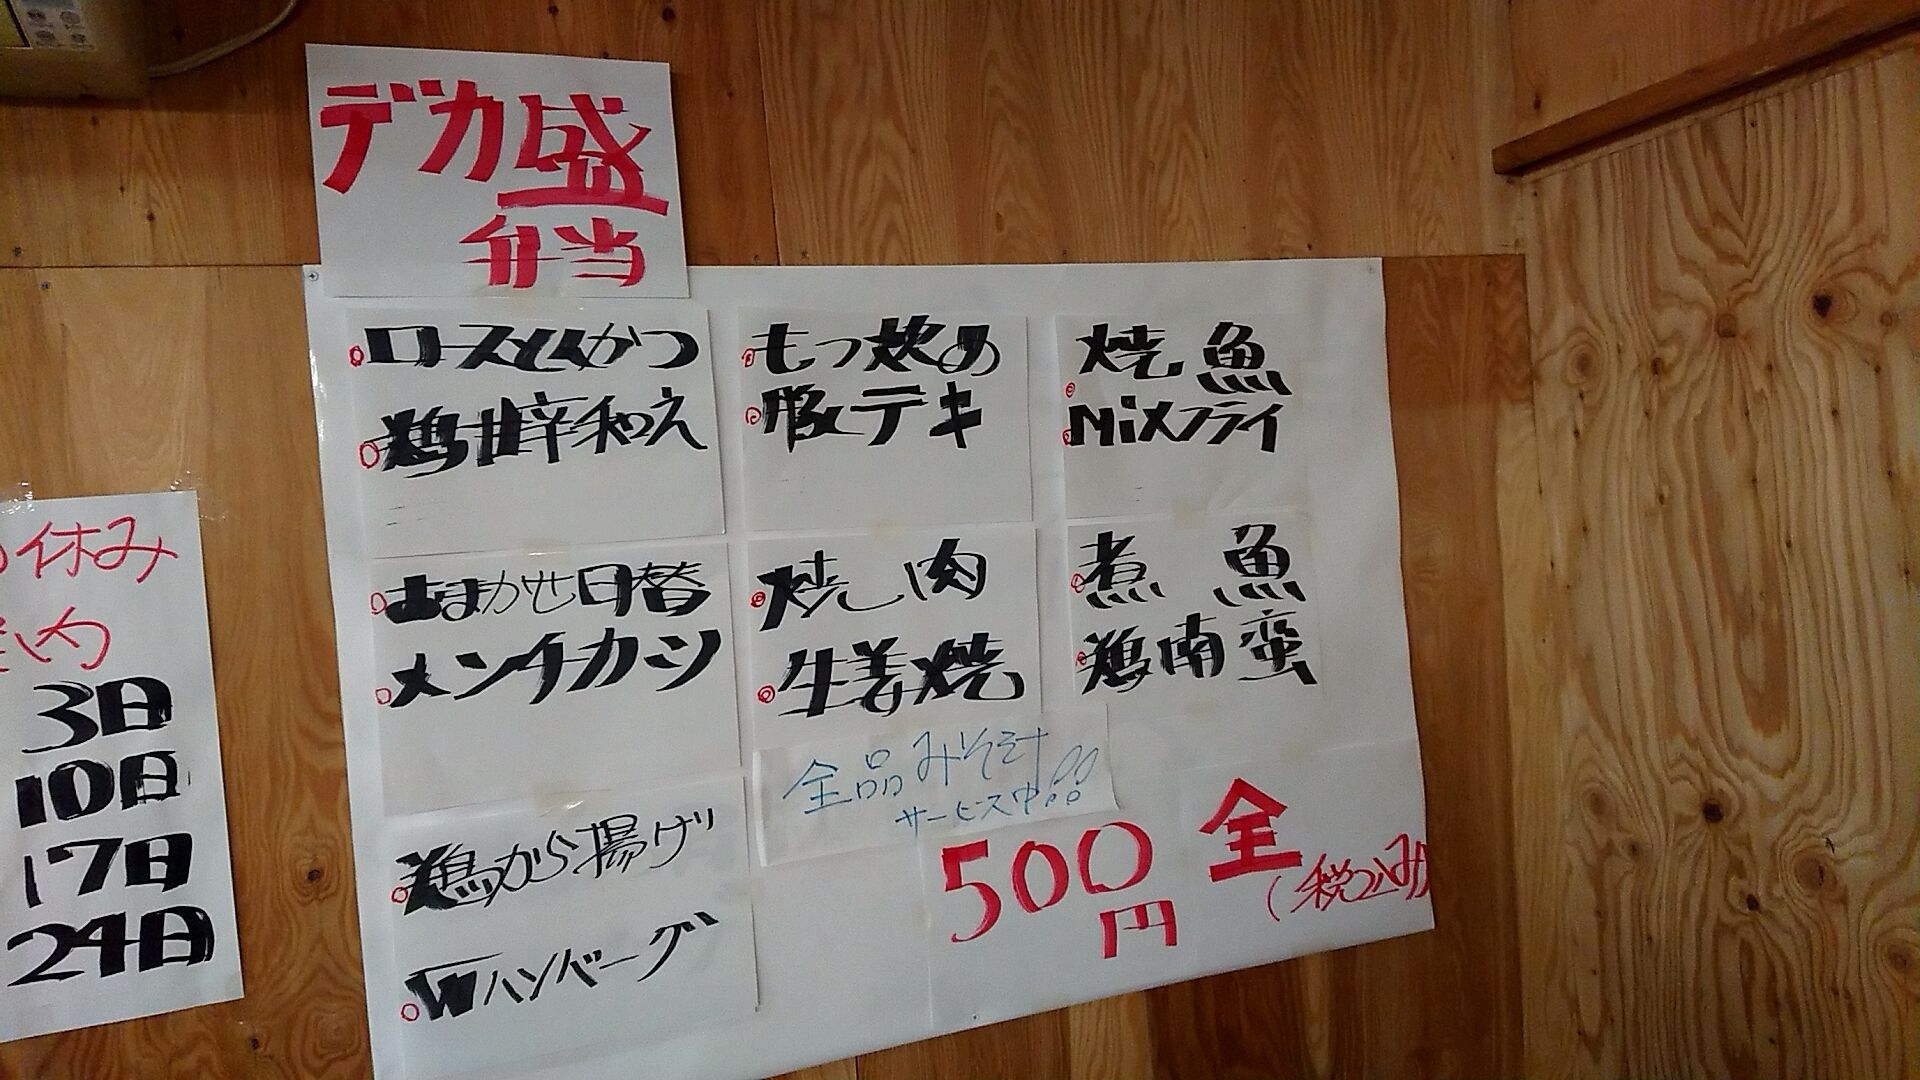 デカ盛
弁当
ロースとんかつ
鶏甘辛和え
おまかせ日替
メンチカツ
鶏から揚げ
Wハンバーグ
もつ炒め
豚テキ
焼肉
生姜焼
焼魚
Mixフライ
煮魚
鶏南蛮
全品みそ汁
サービス中!!
全
500
円
(税込み)
休み
内
3日
10日
17日
24日